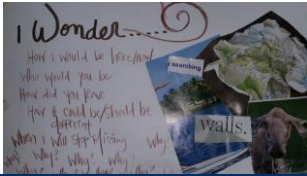 I Wonder......
How I would be here/now
Who would you be
How did you leave
How it could be/should be
different
When I will stop
Why
Why? Why? Why?
searching
walls.